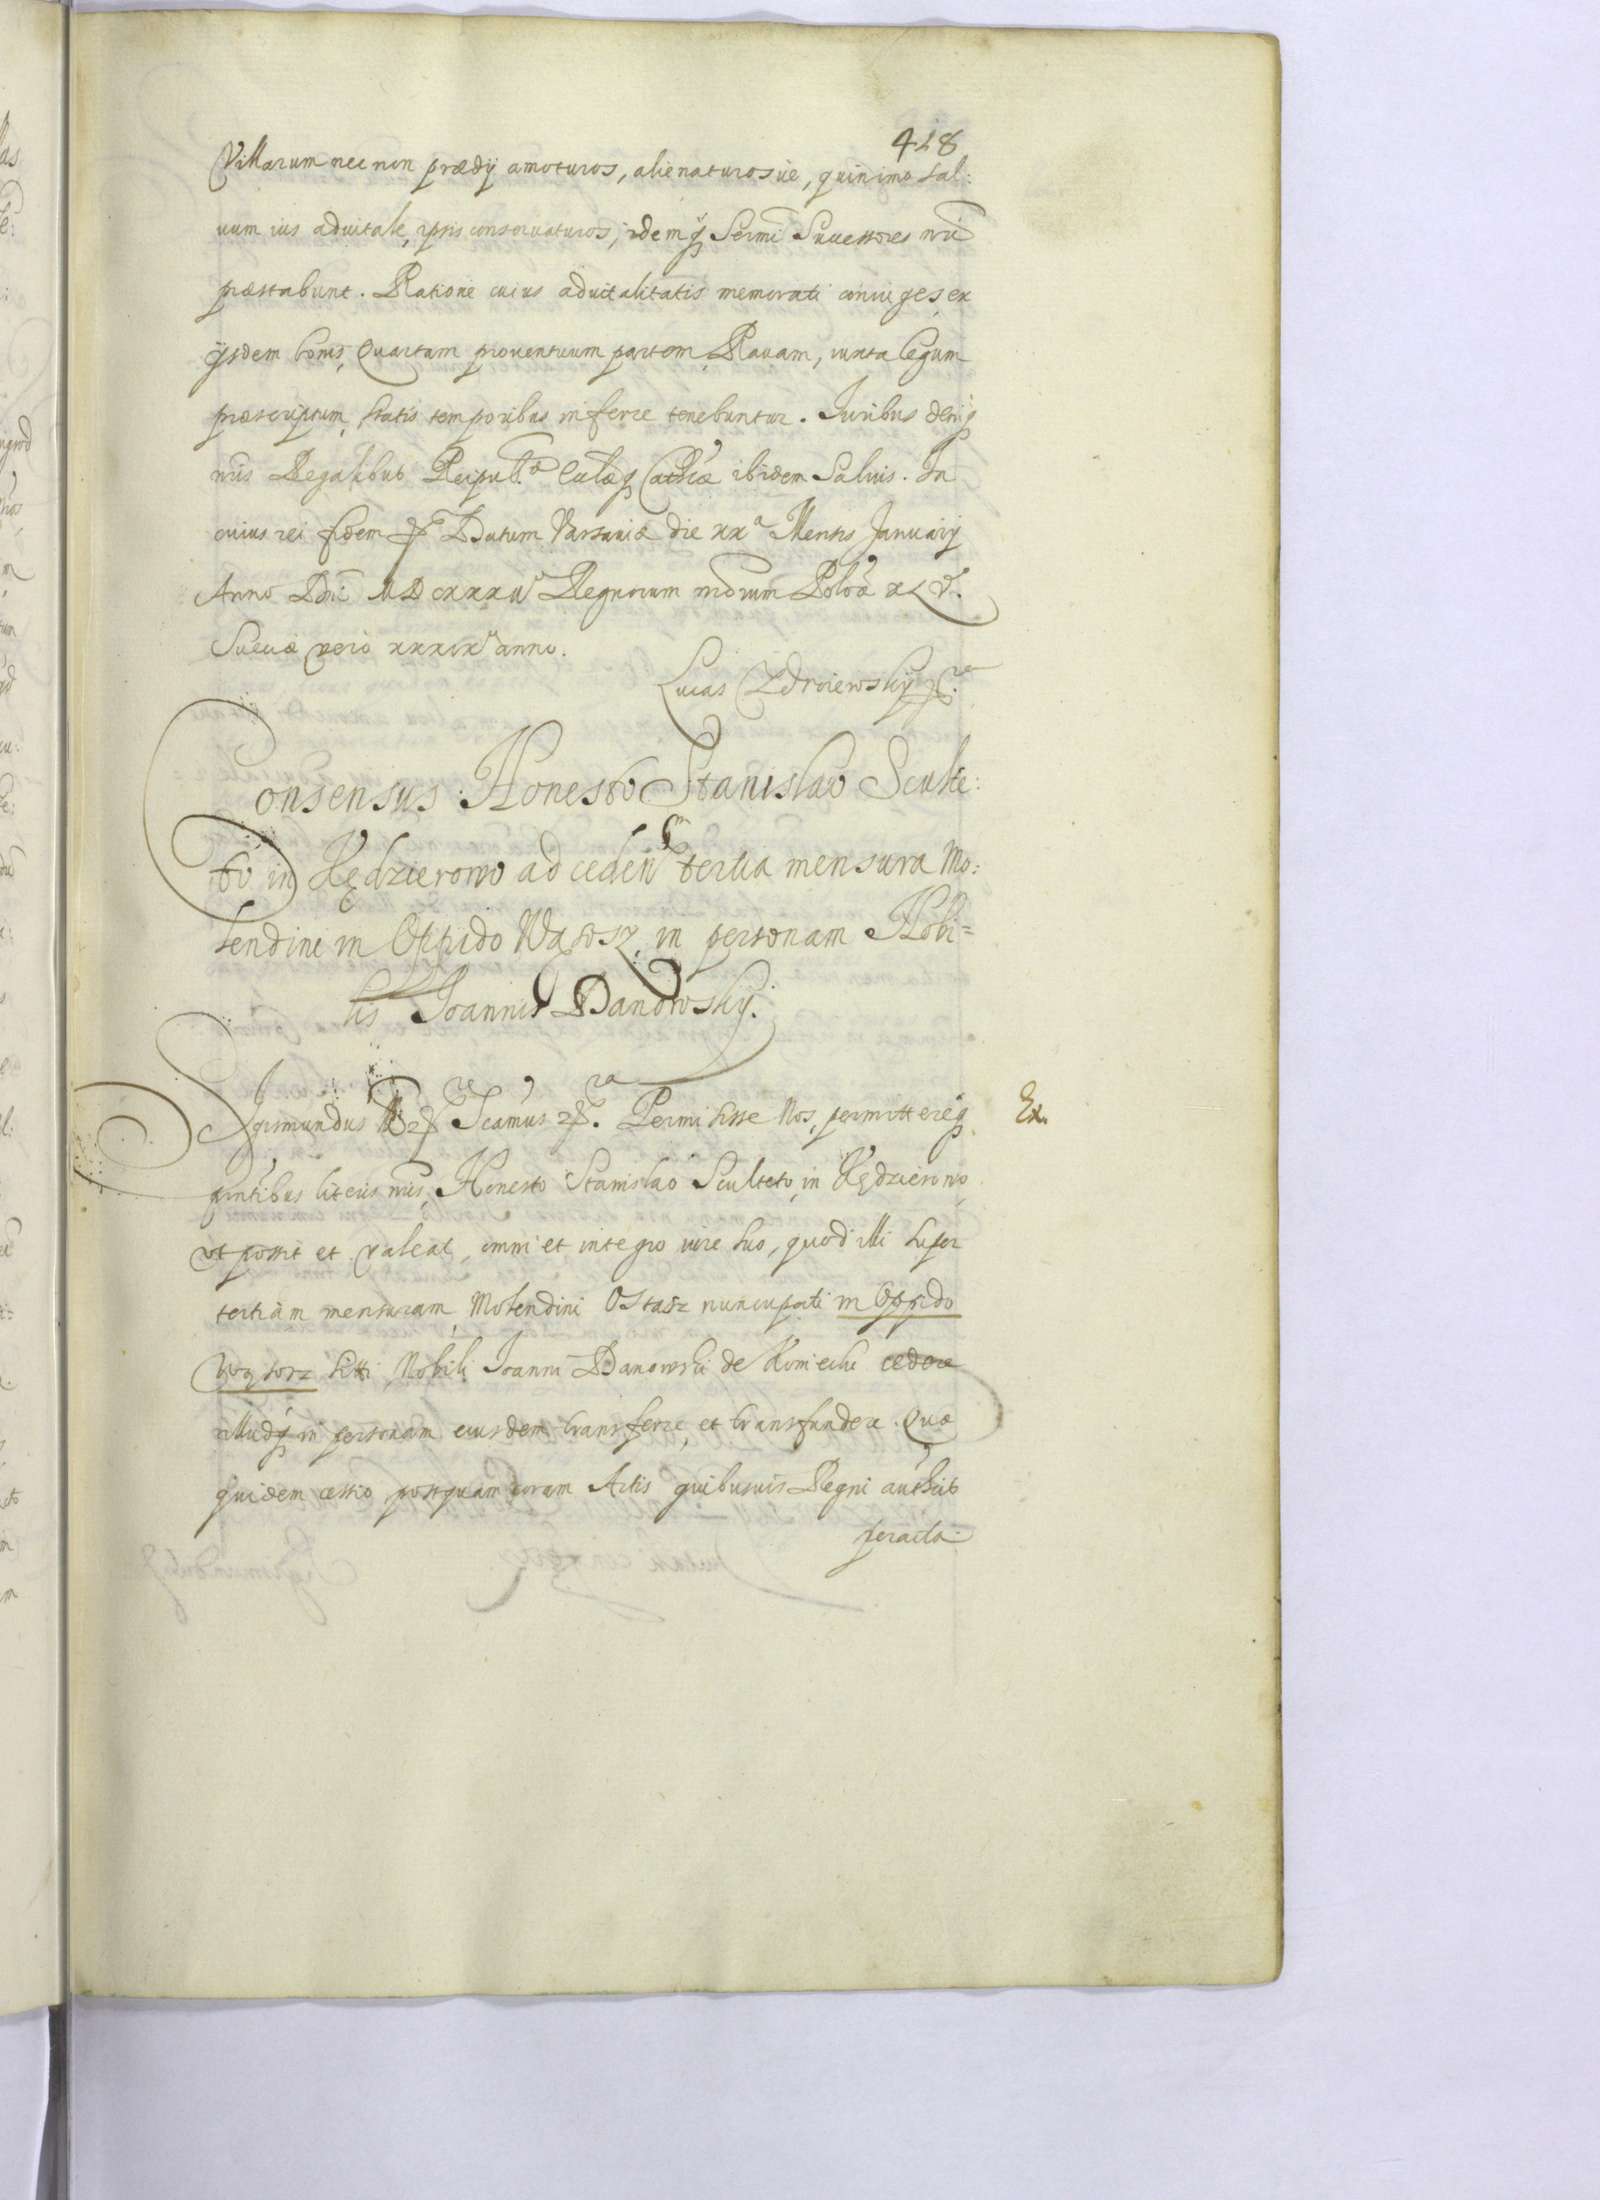 428
Villarum nec non prædij amoturos, alienaturosúe, quinimo sal:
uum ius aduitale, ipsis conseruaturos, idemq Sermi Successores nrĩ
præstabunt. Ratione cuius aduitalitatis memorati coniuges, ex
ijsdem bonis, Quartam prouentuum partem, Rauam, iuxta legum
præscriptum, statis temporibus inferre tenebuntur. Iuribus deniq
nris Regalibus Reipub. Ecclæq Cathcæ ibidem Saluis. In
cuius rei fidem Datum Varsauiæ die xxa Mensis Januarij
Anno Dni MDCxxxii Regnorum nrorum Polon xLV.
Sueciæ vero xxxix anno.
Lucas Zdroiewsky
Consensus Honesto Stanislao Sculte:
to in Kędzierowo adceden tertia mensura Mo:
lendini in Oppido Wąsosz, in personam Nobi=
lis Joannis Danowsky.
Sigismundus Ex.
Tcamus Permisisse Nos, permittereq
pntibus literis nris, Honesto Stanislao Sculteto, in Kędzierowo,
vt possit et valeat, omni et integro iure suo, quod illi super
tertiam mensuram, Molendini Ostasz nuncupati in Oppido
Wąsosz sitti, Nobili Joanni Danowski de Koniecki cedere
illudq in personam eiusdem transferre, et transfundere. Quæ
quidem cessio, postquam coram Actis quibusuis Regni authcis
peracta